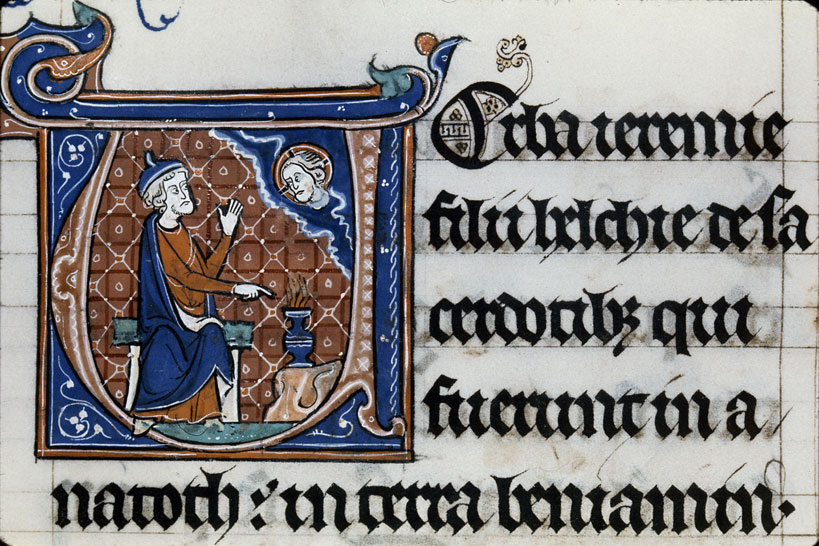 Verba ieremie
filii helchie de sa
cerdotibꝫ qui
fuerunt in a
natoth : in terra beniamin.